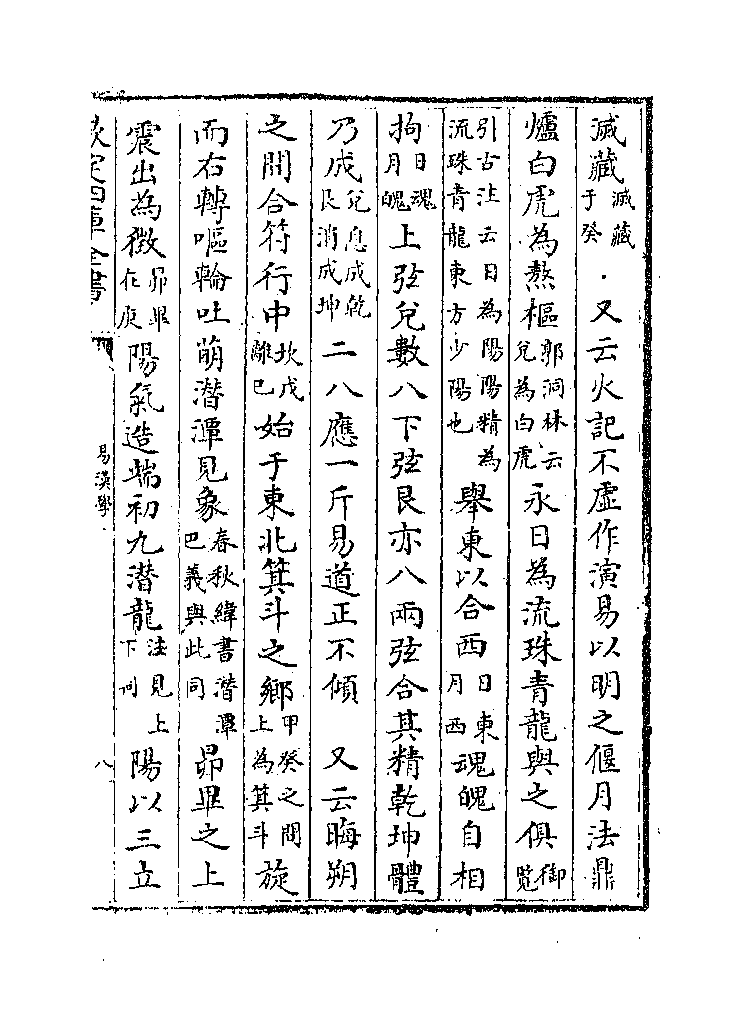 滅藏滅藏于癸 又云火記不虛作演易以明之偃月法鼎
爐白虎為熬樞郭洞林云兌為白虎永日為流珠青龍與之俱御覽
引古注云日為陽陽精為流珠青龍東方少陽也舉東以合西日東月西魂魄自相
拘日魂月魄上弦兌數八下弦艮亦八兩弦合其精乾坤體
乃成兌息成乾艮消成坤二八應一斤易道正不傾 又云晦朔
之間合符行中坎戊離巳始于東北箕斗之鄉甲癸之間上為箕斗旋
而右轉嘔輪吐萌潛潭見象春秋緯書潛潭巴義與此同昴畢之上
震出為徵昴畢在庚陽氣造端初九潛龍注見上下同陽以三立
欽定四庫全書
易漢學
八